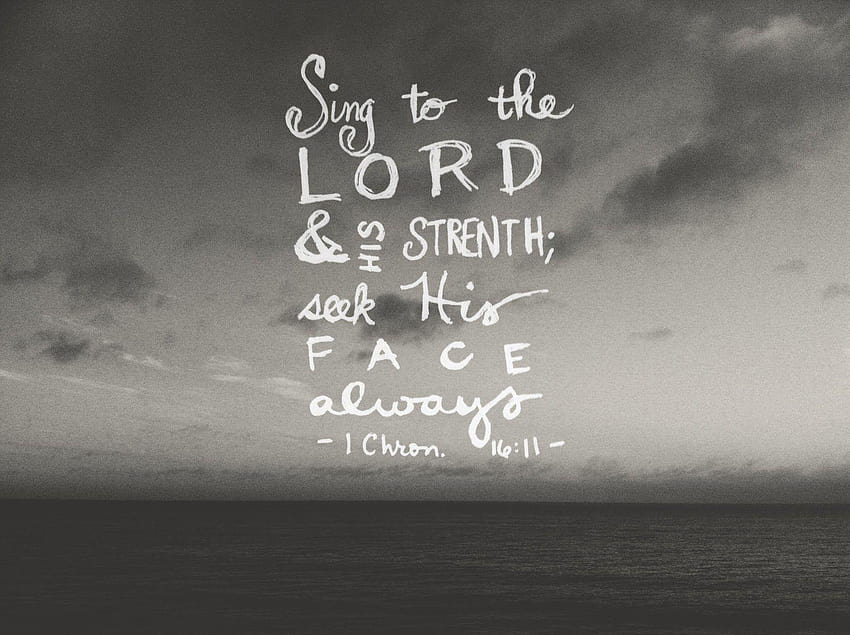 Sing to the
LORD
& HIS STRENTH;
seek His
FACE
always
- 1 Chron. 16:11 -